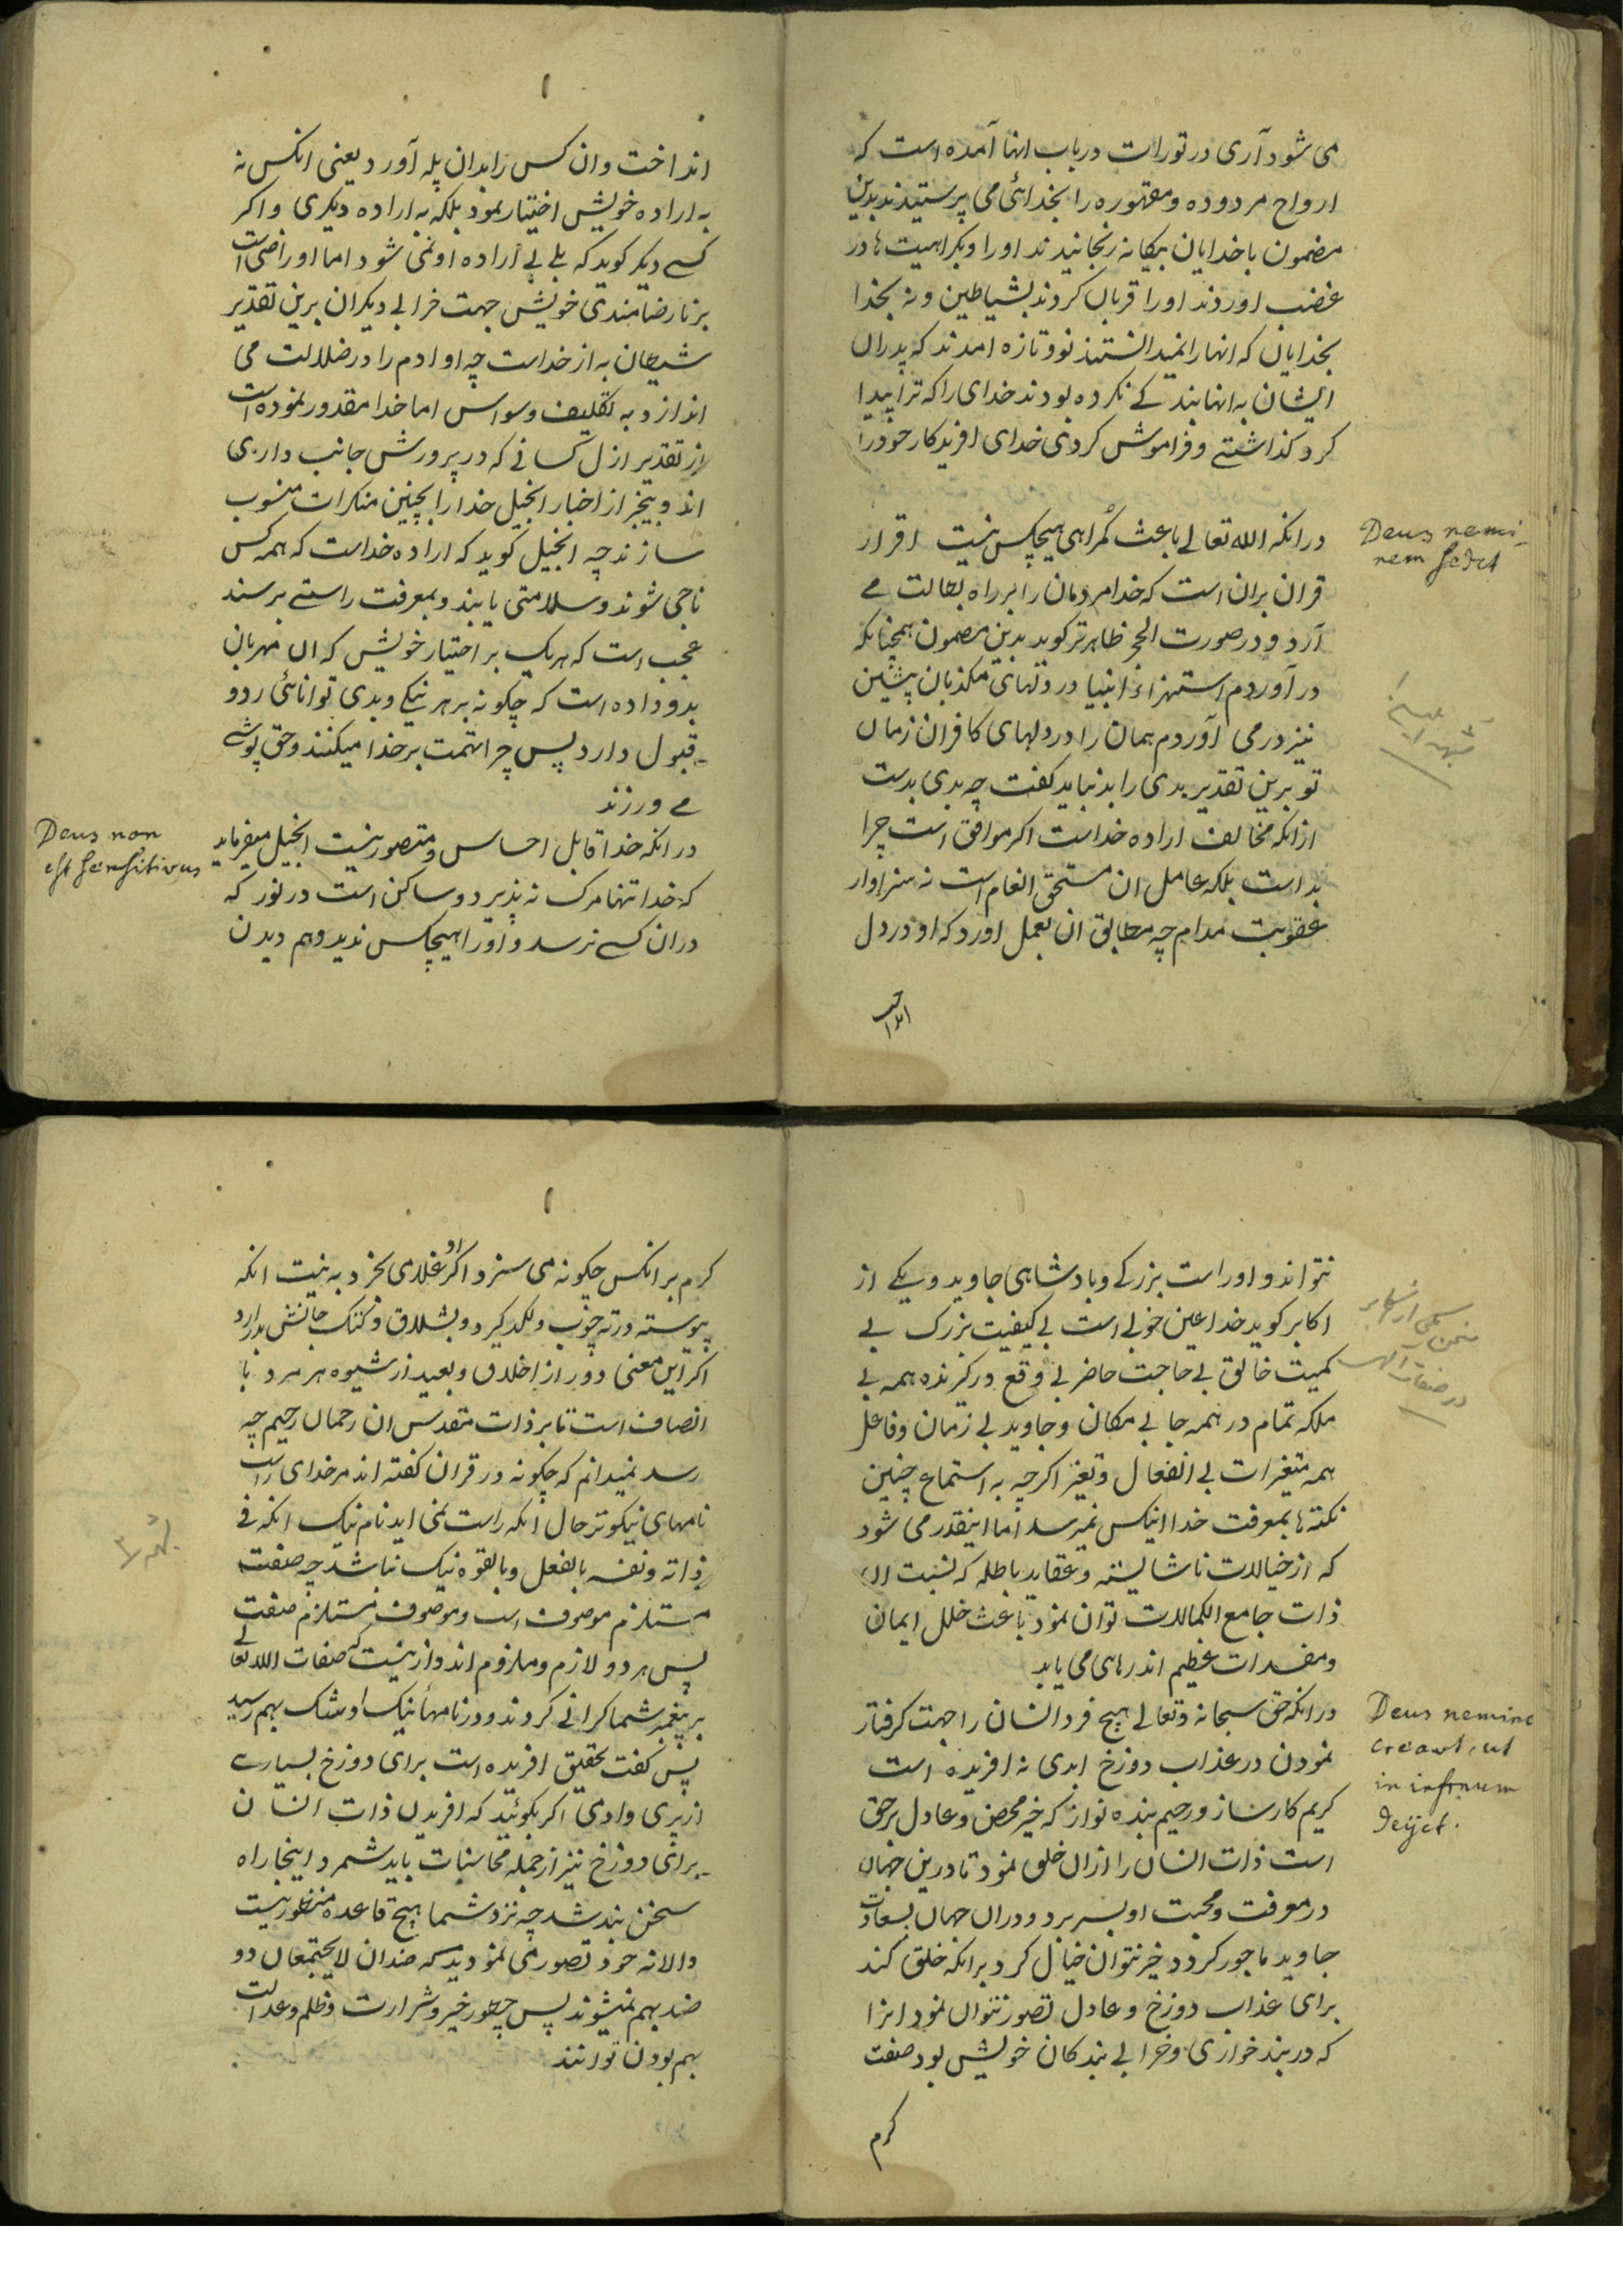 می شود آری در تورات در باب انها آمده است که
ارواح مردوده و مقهوره را بخدائی می پرستیدند بدین
مضمون با خدایان بیکانه رنجانیدند اورا و بکراهیت ها در
غضب اوردند اورا قربان کردند بشیاطین و نه بخدا
بخدایان که انها را نمیدانستند نو و تازه امدند که پدران
ایشان به انها بندکے نکرده بودند خدای را که ترا پیدا
کرد کذاشتے و فراموش کردی خدای افریدکار خود را
در انکه الله تعالے باعث کُمراهی هیچکس نیست اقرار
Deus nemi-
nem sedet
قران بران است که خدا مردمان را بر راه بطالت مے
آرد و در صورت الحجر ظاهرتر کوید بدین مضمون همچنانکه
در آوردم استهزاء انبیا در دلهای مکذبان پیشین
نیز در می آوردم همان را در دلهای کافران زمان
تو برین تقدیر بدی را بد نباید کفت چه بدی بدست
ازانکه مخالف اراده خداست اکر موافق است چرا
بد است بلکه عامل ان مستحق انعام است نه سزاوار
عقوبت مدام چه مطابق ان بعمل اورد که او در دل
انداخت وان کس را بدان پله آورد یعنی انکس نه
به اراده خویش اختیار نمود بلکه به اراده دیکری و اکر
کسے دیکر کوید که بلے بے اراده او نمی شود اما او راضی است
بر نارضامندی خویش جهت خرابے دیکران برین تقدیر
شیطان به از خداست چه او ادم را در ضلالت می
اندازد به تکلیف وسواس اما خدا مقدور نموده است
از تقدیر ازل کسانے که در پرورش جانب داری
اند و بیخبر از اخبار انجیل خدا را بچنین منکرات منسوب
سازند چه انجیل کوید که اراده خداست که همه کس
ناجی شوند و سلامتی یابند و بمعرفت راستے برسند
عجب است که هریک بر اختیار خویش که ان مهربان
بدو داده است که چکونه بر هر نیکے و بدی توانائی رد و
قبول دارد پس چرا تهمت بر خدا میکنند و حق پوشے
مے ورزند
در انکه خدا قابل احساس و متصور نیست انجیل میفرماید
Deus non
est sensitivus
که خدا تنها مرک نه پذیرد و ساکن است در نور که
دران کسے نرسد و اورا هیچکس ندید و هم دیدن
نتواند و اوراست بزرکے و بادشاهی جاوید و یکے از
اکابر کوید خدا عین خوبے است بے کیفیت بزرک بے
کمیت خالق بے حاجت حاضر بے وقع در کرنده همه بے
ملکه تمام در همه جا بے مکان و جاوید بے زمان و فاعل
همه متغیرات بے انفعال و تغیر اکرچه به استماع چنین
نکته ها بمعرفت خدا اینکس نمیرسد اما اینقدر می شود
که از خیالات ناشایسته و عقاید باطله که نسبت ان
ذات جامع الکمالات توان نمود باعث خلل ایمان
و مفسدات عظیم اند رهاهی می یابد
در انکه حق سبحانه و تعالے هیچ فرد انسان را جهت کرفتار
Deus neminē
creavit, ut
in infernum
dejiet.
نمودن در عذاب دوزخ ابدی نه افریده است
کریم کارساز و رحیم بنده نواز که خیر محض و عادل برحق
است ذات انسان را ازان خلق نمود تا درین جهان
در معرفت و محبت او بسر برد و دران جهان بسعادت
جاوید ماجور کردد خیر نتوان خیال کرد برانکه خلق کند
برای عذاب دوزخ و عادل تصور نتوان نمود انرا
که در بند خواری و خرابے بندکان خویش بود صفت
کرم
کرم بر انکس چکونه می سزد اکر او غلامی بخرد به نیت انکه
پیوسته در ته چوب و لکد کیرد و بشلاق و کتک جانش بدر ارد
اکر این معنی دور از اخلاق و بعید از شیوه هر مرد با
انصاف است تا بر ذات مقدس ان رحمان رحیم چه
رسد نمیدانم که چکونه در قران کفته اند مر خدای راست
نامهای نیکوتر حال انکه راست نمی اید نام نیک انکه فے
ذاته و نفسه بالفعل و بالقوه نیک نباشد چه صفت
مستلزم موصوف است و موصوف مستلزم صفت
پس هر دو لازم و ملزوم اند و ازینست که صفات الله تعالے
بر پیغمبر شما کرانے کردند و در نامهاء نیک او شک بهم رسید
پس کفت تحقیق افریده است برای دوزخ بسیارے
از پری و ادمی اکر بکوئید که افریدن ذات انسان
برای دوزخ نیز از جمله محاسنات باید شمرد اینجا راه
سخن بند شد چه نزد شما هیچ قاعده منظور نیست
والا نه خود تصور می نمودید که ضدان لا یجتمعان دو
ضد بهم نمیشوند پس چطور خیر و شرارت و ظلم و عدالت
بهم بودن توانند